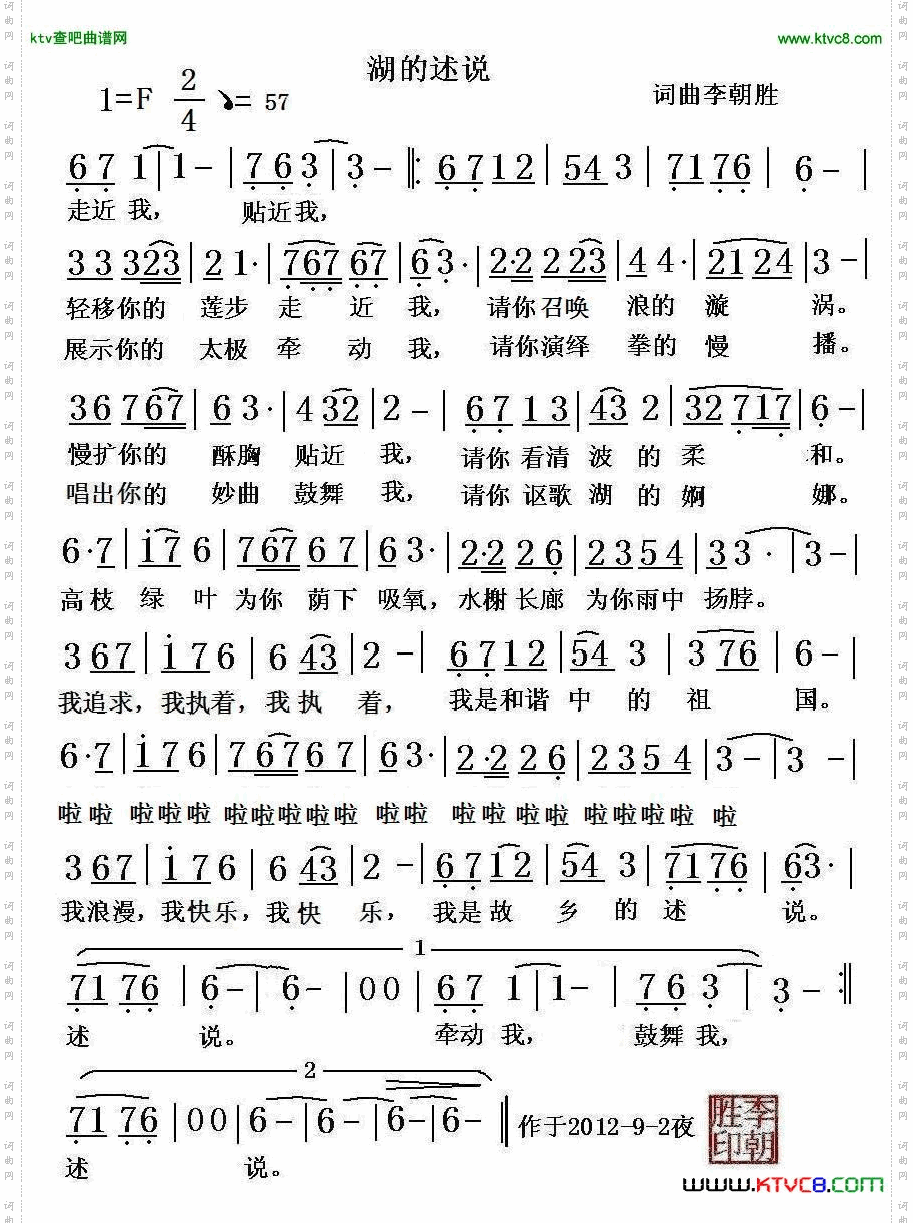 ktv查吧曲谱网 www.ktvc8.com
湖的述说
1=F 2/4 = 57 词曲李朝胜
6 7 1 | 1 - | 7 6 3 | 3 - |: 6 7 1 2 | 5 4 3 | 7 1 7 6 | 6 - |
走近 我， 贴近我，
3 3 3 2 3 | 2 1 · | 7 6 7 6 7 | 6 3 · | 2 · 2 2 2 3 | 4 4 · | 2 1 2 4 | 3 - |
轻移你的 莲步 走 近 我， 请你召唤 浪的 漩 涡。
展示你的 太极 牵 动 我， 请你演绎 拳的 慢 播。
3 6 7 6 7 | 6 3 · | 4 3 2 | 2 - | 6 7 1 3 | 4 3 2 | 3 2 7 1 7 | 6 - |
慢扩你的 酥胸 贴近 我， 请你 看清 波 的 柔 和。
唱出你的 妙曲 鼓舞 我， 请你 讴歌 湖 的 婀 娜。
6 · 7 | 1 7 6 | 7 6 7 6 7 | 6 3 · | 2 · 2 2 6 | 2 3 5 4 | 3 3 · | 3 - |
高枝 绿 叶 为你 荫下 吸氧， 水榭 长廊 为你雨中 扬脖。
3 6 7 | 1 7 6 | 6 4 3 | 2 - | 6 7 1 2 | 5 4 3 | 3 7 6 | 6 - |
我追求， 我执着， 我 执 着， 我是和谐 中 的 祖 国。
6 · 7 | 1 7 6 | 7 6 7 6 7 | 6 3 · | 2 · 2 2 6 | 2 3 5 4 | 3 - | 3 - |
啦 啦 啦啦啦 啦啦啦啦啦 啦啦 啦啦 啦啦 啦啦啦啦 啦
3 6 7 | 1 7 6 | 6 4 3 | 2 - | 6 7 1 2 | 5 4 3 | 7 1 7 6 | 6 3 · |
我浪漫， 我快乐， 我 快 乐， 我是 故 乡 的 述 说。
1
7 1 7 6 | 6 - | 6 - | 0 0 | 6 7 1 | 1 - | 7 6 3 | 3 - :|
述 说。 牵动 我， 鼓舞 我，
2
7 1 7 6 | 0 0 | 6 - | 6 - | 6 - | 6 - || 作于2012-9-2夜
述 说。
李朝胜印
www.KTVC8.com
词曲网